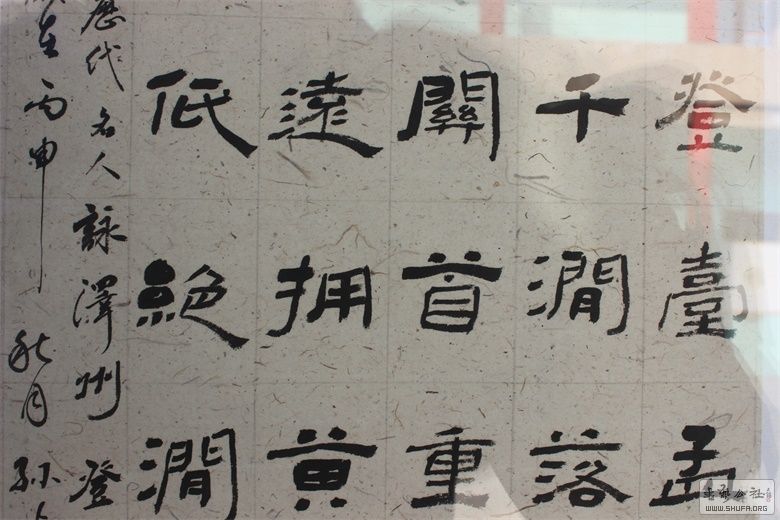 登臺孟
千澗落
關首重
遠拥黄
低絕澗
歷代名人詠澤州登
在丙申秋月孙
WWW.SHUFA.ORG